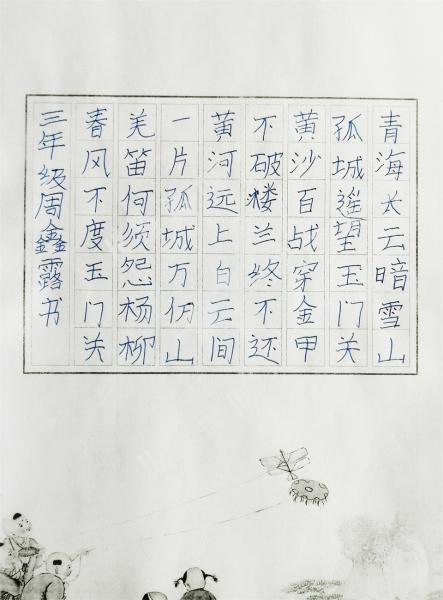 青海长云暗雪山
孤城遥望玉门关
黄沙百战穿金甲
不破楼兰终不还
黄河远上白云间
一片孤城万仞山
羌笛何须怨杨柳
春风不度玉门关
三年级周鑫露书